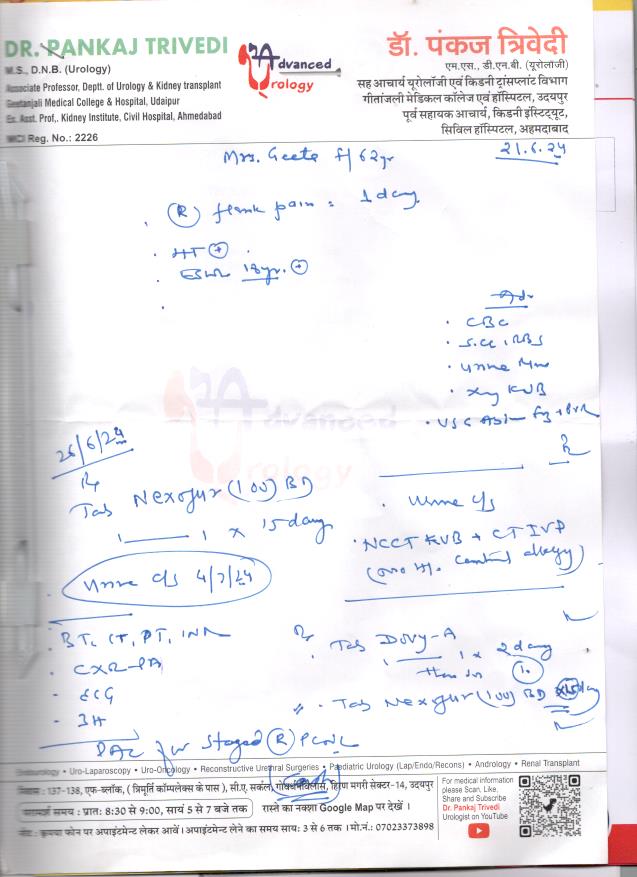 DR. PANKAJ TRIVEDI
M.S., D.N.B. (Urology)
Associate Professor, Deptt. of Urology & Kidney transplant
Geetanjali Medical College & Hospital, Udaipur
Ex. Asst. Prof., Kidney Institute, Civil Hospital, Ahmedabad
MCI Reg. No.: 2226
Advanced
Urology
डॉ. पंकज त्रिवेदी
एम.एस., डी.एन.बी. (यूरोलॉजी)
सह आचार्य यूरोलॉजी एवं किडनी ट्रांसप्लांट विभाग
गीतांजली मेडिकल कॉलेज एवं हॉस्पिटल, उदयपुर
पूर्व सहायक आचार्य, किडनी इंस्टिट्यूट,
सिविल हॉस्पिटल, अहमदाबाद
Mrs. Geeta f/62yr
21.6.24
(R) flank pain : 1 day
HT +
18yr. +
Adv
CBC
S.Cr, RBS
Xray KUB
Advanced
Urology
26/6/24
Rx
Tab Nexofur (100) BD
1 — 1 x 15 day
Urine c/s 4/7/24
Urine c/s
NCCT KUB + CT IVP
BT, CT, PT, INR
CXR-PA
ECG
PAC for Staged (R) PCNL
Rx
1 x 2 day
Tab Nexofur (100) BD x 15 day
Endourology • Uro-Laparoscopy • Uro-Oncology • Reconstructive Urethral Surgeries • Paediatric Urology (Lap/Endo/Recons) • Andrology • Renal Transplant
निवास : 137-138, एफ-ब्लॉक, ( त्रिमूर्ति कॉम्पलेक्स के पास ), सी.ए. सर्कल, हिरण मगरी सेक्टर-14, उदयपुर
परामर्श समय : प्रातः 8:30 से 9:00, सायं 5 से 7 बजे तक रास्ते का नक्शा Google Map पर देखें ।
नोट : कृपया फोन पर अपाइंटमेन्ट लेकर आवें । अपाइंटमेन्ट लेने का समय सायः 3 से 6 तक । मो.नं.: 07023373898
For medical information
please Scan, Like,
Share and Subscribe
Dr. Pankaj Trivedi
Urologist on YouTube